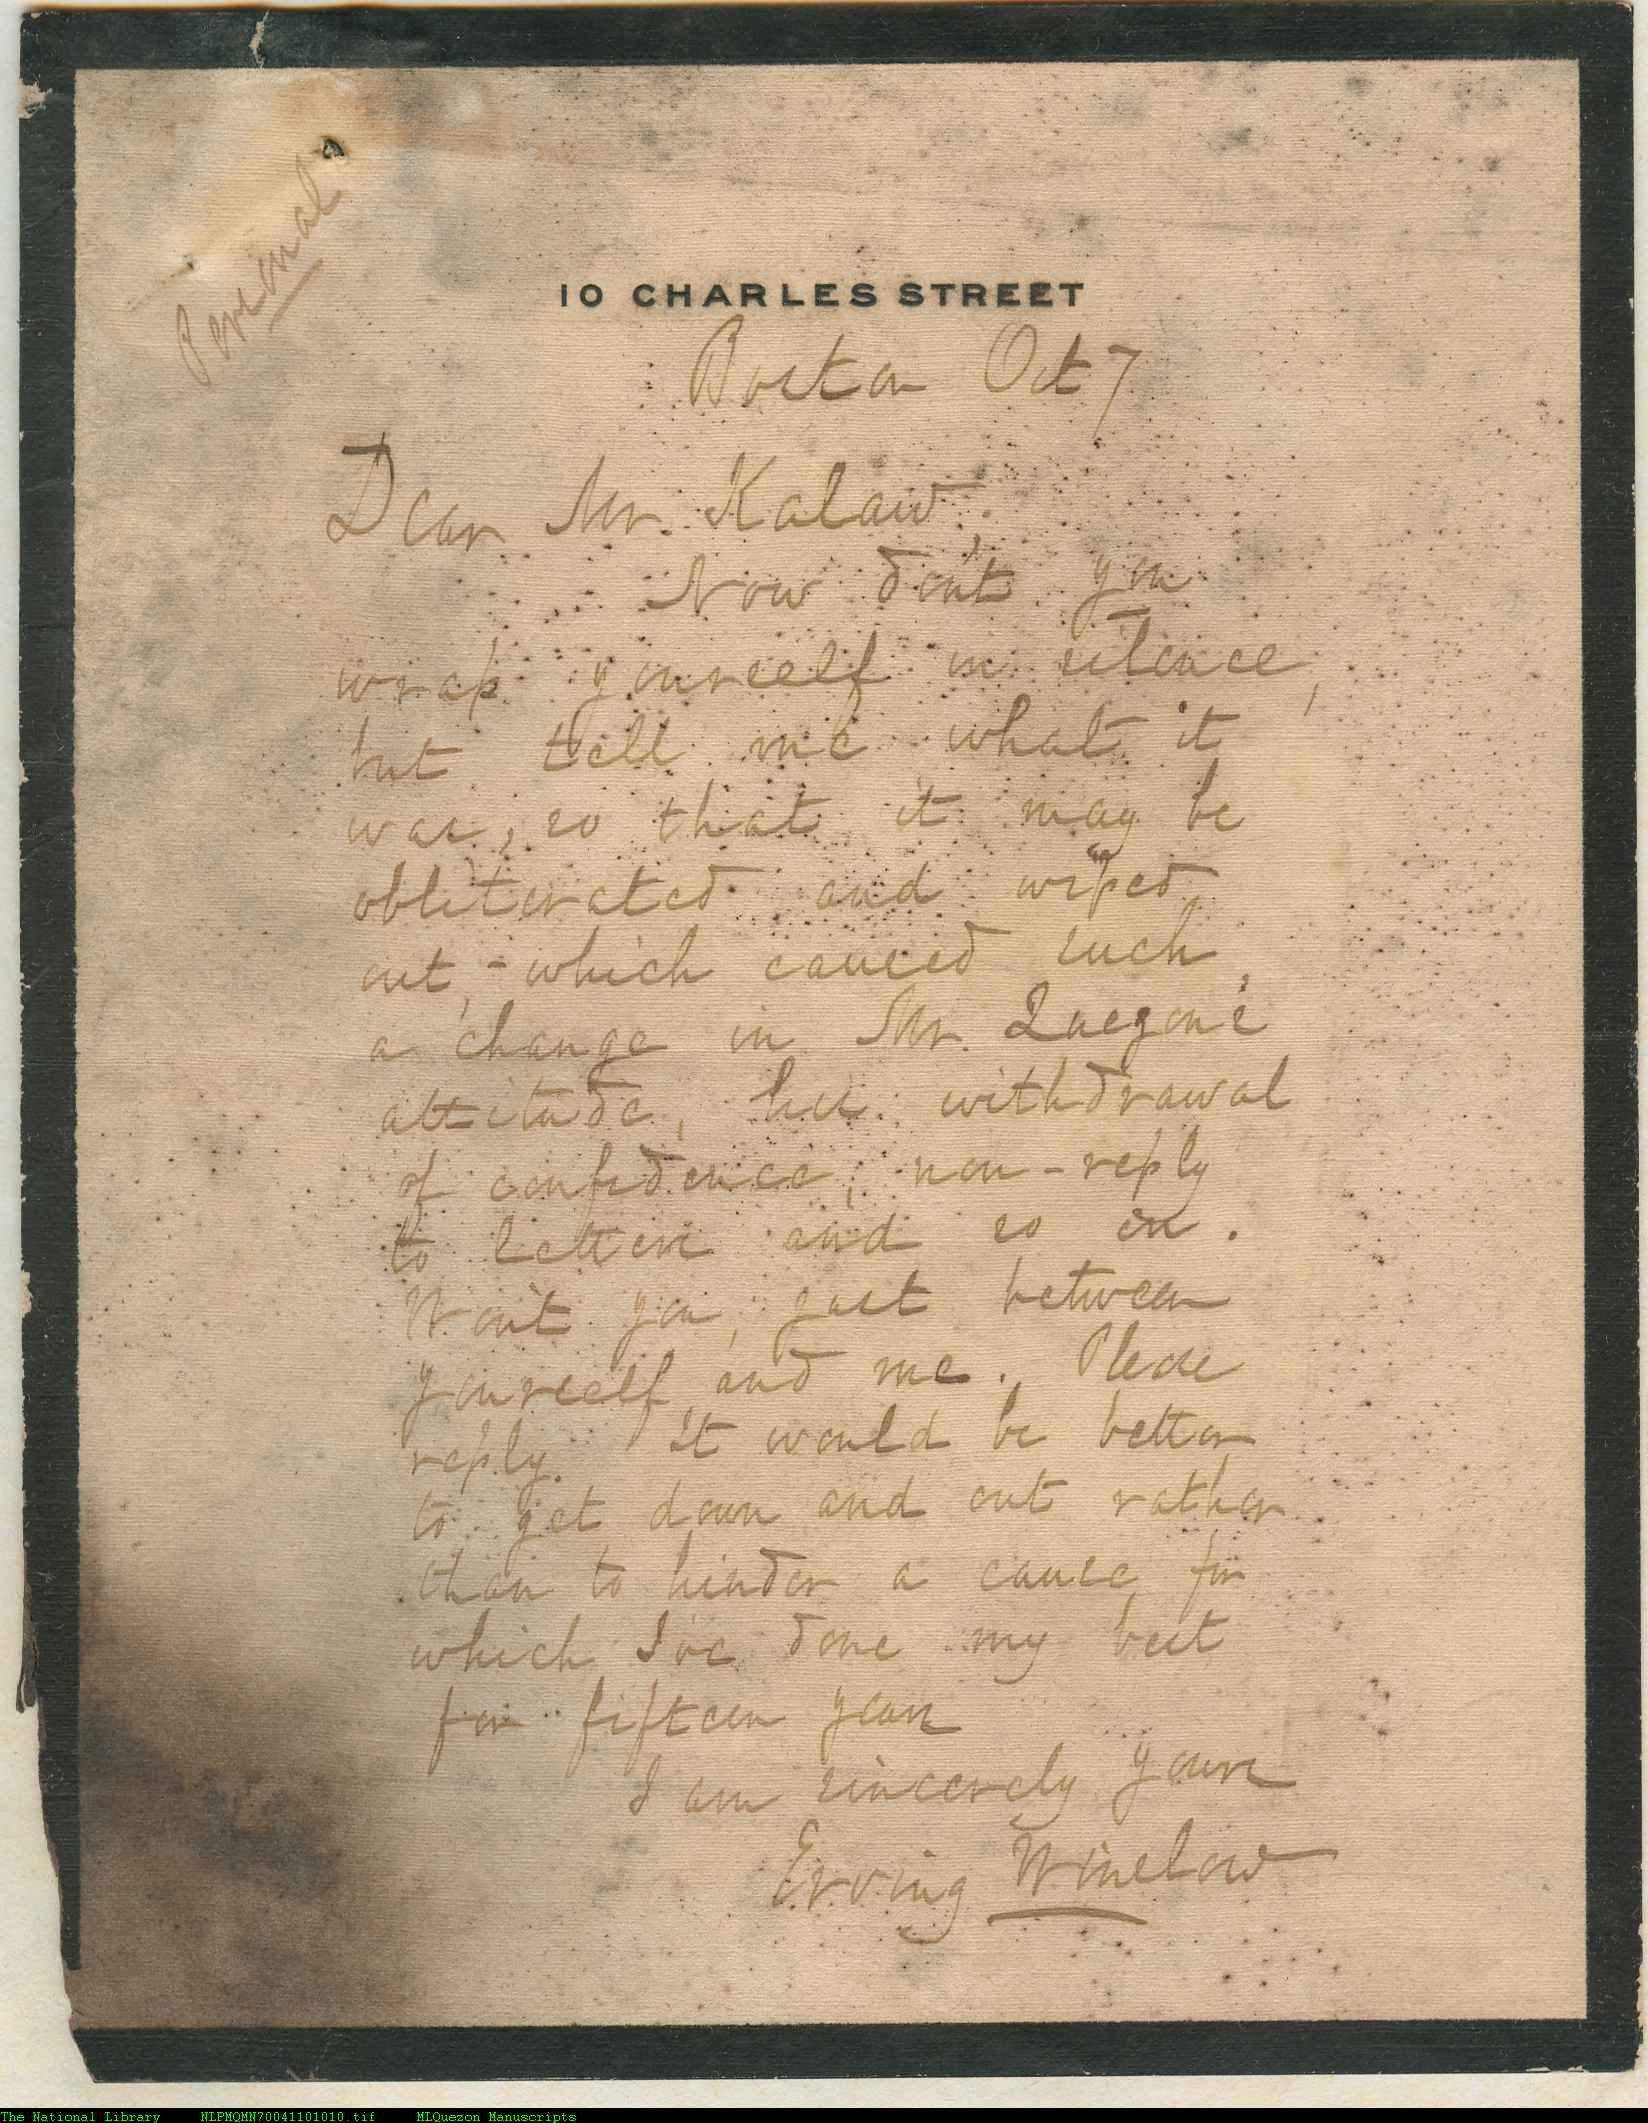 Personal
10 CHARLES STREET
Boston Oct 7
Dear Mr Kalaw,
Now don't you
wrap yourself in silence,
but tell me what it
was, so that it may be
obliterated and wiped
out, - which caused such
a change in Mr Quezon's
attitude, his withdrawal
of confidence, non-reply
to letters and so on.
Won't you, just between
yourself and me. Please
reply. It would be better
to get down and out rather
than to hinder a cause for
which I've done my best
for fifteen years
I am sincerely yours
Erving Winslow
The National Library NLPMQMN70041101010.tif MLQuezon Manuscripts